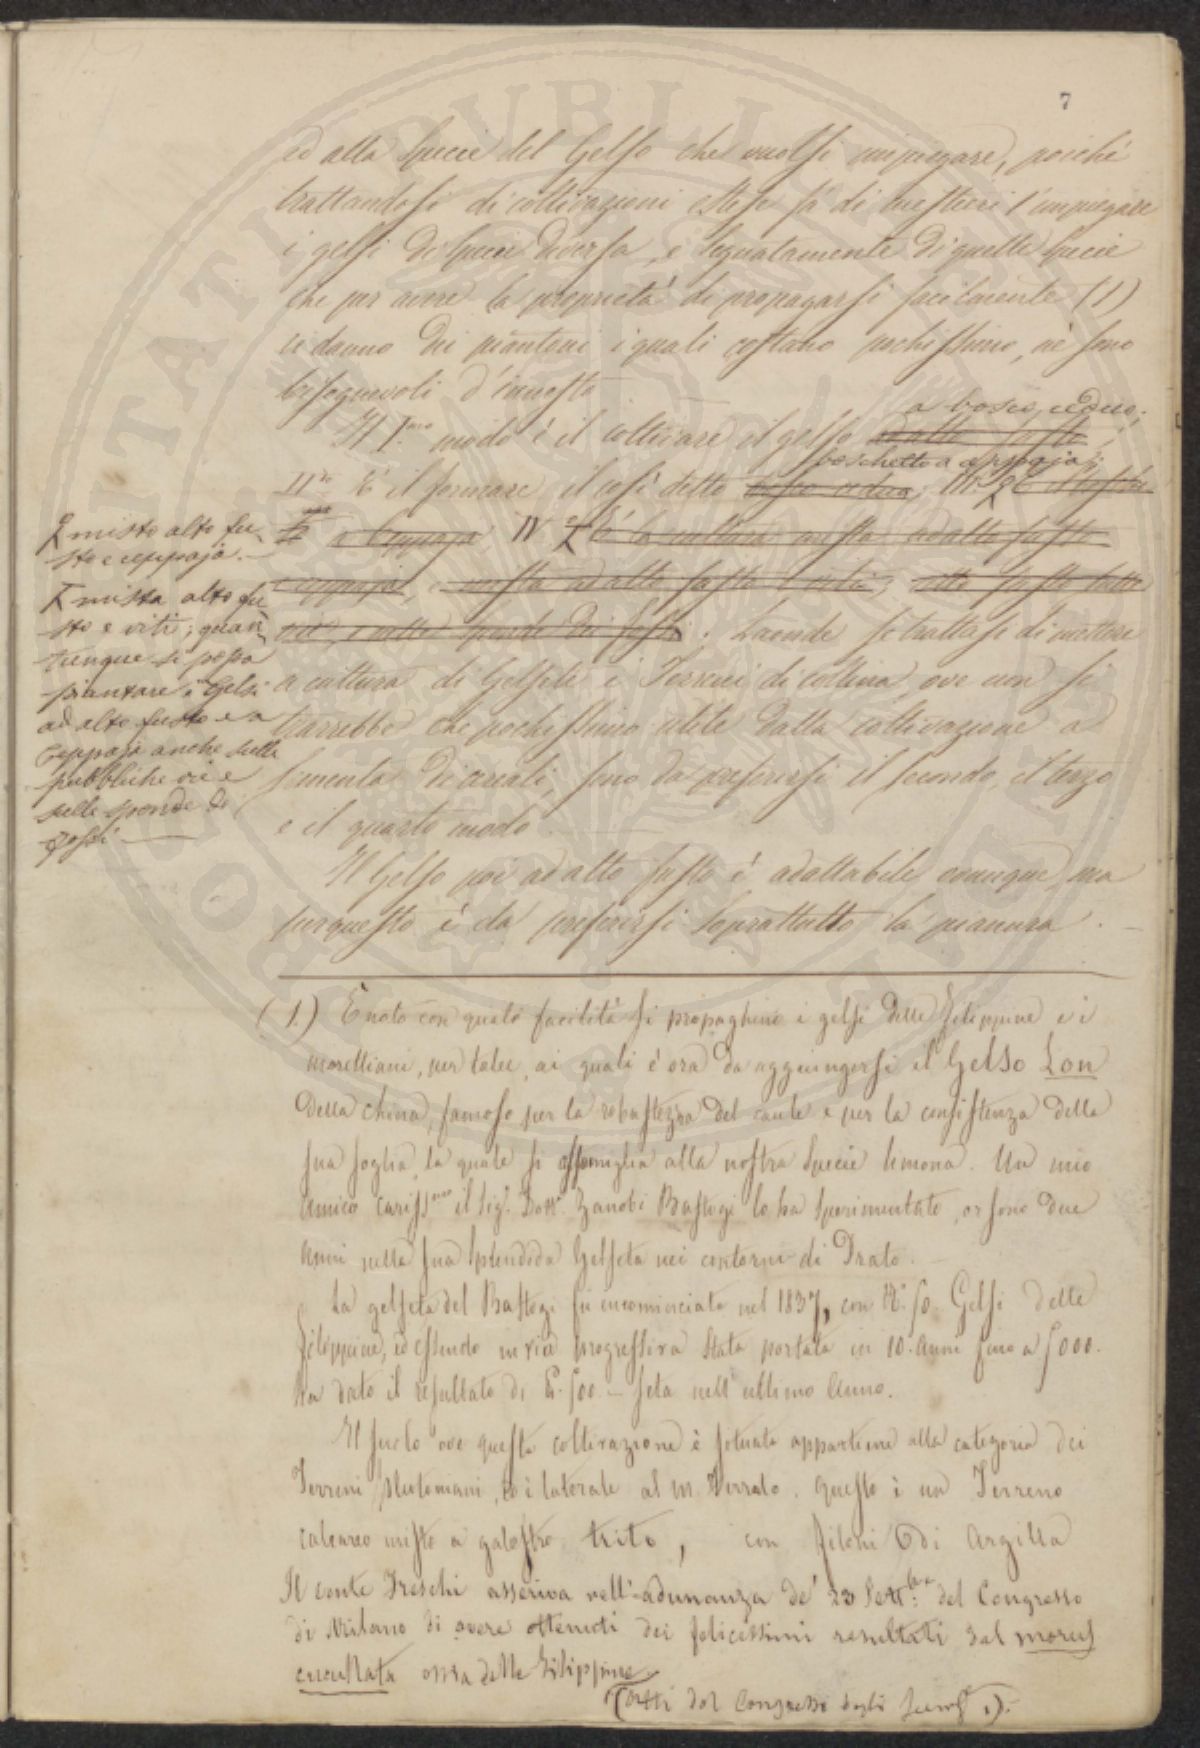 7
ed alla Specie del Gelso che vuolsi impiegare, poiché
trattandosi di coltivazioni estese fà di mestieri l'impiegare
i gelsi di Specie diversa, e Segnatamente di quelle Specie
che per avere la proprietà di propagarsi facilmente (1)
ci danno dei piantoni i quali costano pochissimo, nè sono
bisognevoli d'innesto
a bosco ceduo;
Il I.mo modo è il coltivare il gelso ad alto fusto;
boschetto a ceppaja;
II.o È il formare il così detto bosco ceduo; III.
a Ceppaja IV È la coltura mista ad alto fusto
e ceppaja, e mista ad alto fusto e viti; alto fusto
. Laonde se trattasi di mettere
a cultura di Gelseti i Terreni di collina, ove non si
trarrebbe che pochissimo utile dalla coltivazione a
sementa di cereali, sono da preferirsi il secondo, il terzo
e il quarto modo.
Il Gelso poi ad alto fusto è adattabile ovunque, ma
per questo è da preferirsi soprattutto la pianura.
misto alto fu-
sto e ceppaja.
mista alto fu
sto e viti; quan-
tunque si possa
piantare i Gelsi
ad alto fusto e a
ceppaja anche sulle
pubbliche vie e
sulle sponde de
fossi
(1.) È noto con quale facilità si propaghino i gelsi delle Filippine e i
morettiani, per talee, ai quali è ora da aggiungersi il Gelso Lou
della China, famoso per la robustezza del caule e per la consistenza della
sua foglia, la quale si assomiglia alla nostra Specie limona. Un mio
Amico cariss.mo il Sig.r Dott.r Zanobi Bastogi lo ha Sperimentato, or sono due
Anni nella sua Splendida Gelseta nei contorni di Prato.
La gelseta del Bastogi fù incominciata nel 1837, con N.o 50. Gelsi delle
Filippine, ed essendo in via progressiva stata portata in 10. Anni fino a 5000.
ha dato il resultato di £. 500 seta nell'ultimo Anno.
Il suolo ove questa coltivazione è situata appartiene alla categoria dei
Terreni Plutoniani, ed è laterale al M. Ferrato. Questo è un Terreno
calcareo misto a galestro trito, con filoni di Argilla
Il conte Freschi asseriva nell'adunanza de' 23 Sett.bre del Congresso
di Milano di avere ottenuti dei felicissimi resultati dal morus
cucullata ossia delle Filippine.
(Atti del Congresso degli Scienz.i).